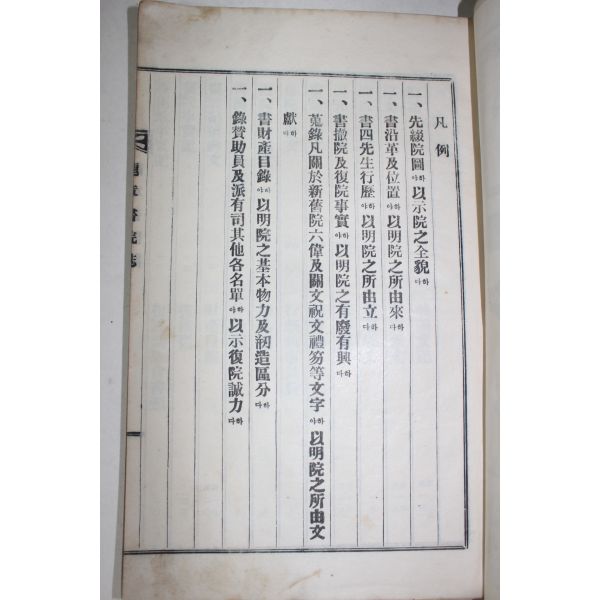 凡例
一、先綴院圖하야以示院之全貌하다
一、書沿革及位置하야以明院之所由來하다
一、書四先生行歷하야以明院之所由立하다
一、書撤院及復院事實하야以明院之有廢有興하다
一、蒐錄凡關於新舊院六偉及關文祝文禮笏等文字하야以明院之所由文
獻하다
一、書財產目錄하야以明院之基本物力及剏造區分하다
一、錄贊助員及派有司其他各名單하야以示復院誠力하다
書院誌